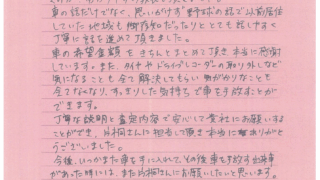 車の話だけでなく、思いがけず野球の話で以前居住
していた地域も御存知だったりととても話しやすく
丁寧に話を進めて頂きました。
車の希望金額をきちんとまとめて頂き本当に感謝し
ています。また、タイヤやドライブレコーダーの取り外しなど
気になることも全て解決してもらい気がかりなことも
全てなくなり、すっきりした気持ちで車を手放すことがで
きます。
丁寧な説明と査定内容で安心して貴社にお願いする
ことができ、片桐さんに担当して頂き本当にありがと
うございました。
今後、いつかまた車を手に入れて、その後車を手放す出来事
があった時には、また片桐さんにお願いしたいと思います。